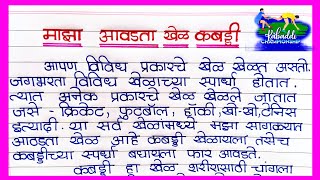 माझा आवडता खेळ कबड्डी
Kabaddi
CHAMPIONSHIP
आपण विविध प्रकारचे खेळ खेळत असतो.
जगभरात विविध खेळाच्या स्पर्धा होतात.
त्यात अनेक प्रकारचे खेळ खेळले जातात
जसे - क्रिकेट, फुटबॉल, हॉकी, खो-खो, टेनिस
इत्यादी. या सर्व खेळांमध्ये मझा सागळ्यात
आवडता खेळ आहे कबड्डी खेळायला तसेच
कबड्डीच्या स्पर्धा बघायला फार आवडते.
कबड्डी हा खेळ शरीरासाठी चांगला